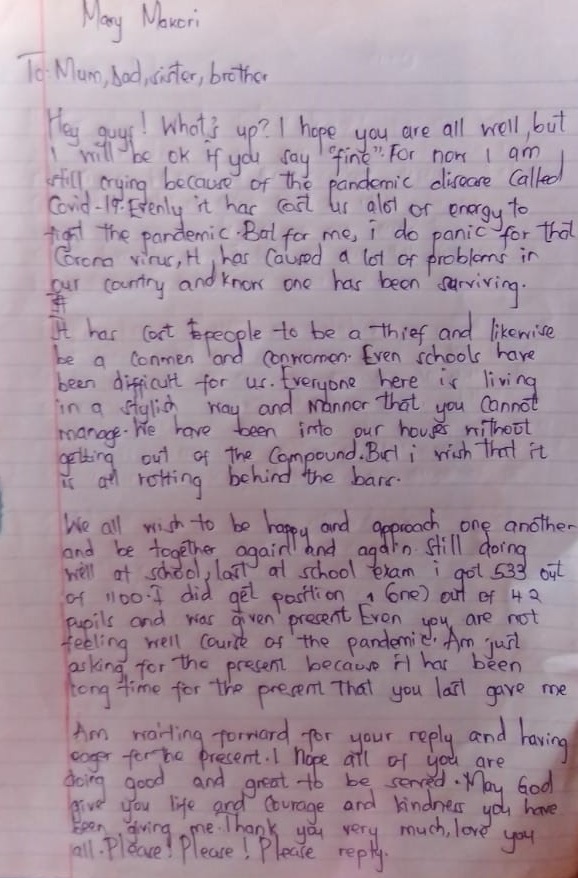 Mary Makori
To: Mum, dad, sister, brother
Hey guys! What's up? I hope you are all well, but
I will be ok if you say "fine". For now I am
still crying because of the pandemic disease called
Covid-19. Evenly it has cost us alot of energy to
fight the pandemic. But for me, i do panic for that
Corona virus, It has caused a lot of problems in
our country and know one has been surviving.
It has cost people to be a thief and likewise
be a conmen and conwomen. Even schools have
been difficult for us. Everyone here is living
in a stylish way and manner that you cannot
manage. We have been into our houses without
getting out of the compound. But i wish that it
is all rotting behind the bars.
We all wish to be happy and approach one another
and be together again and again. Still doing
well at school, last at school exam i got 533 out
of 1100. I did get position 1 (one) out of 42
pupils and was given present Even you are not
feeling well course of the pandemic. Am just
asking for the present because it has been
long time for the present that you last gave me
Am waiting forward for your reply and having
eager for the present. I hope all of you are
doing good and great to be served. May God
give you life and courage and kindness you have
been giving me. Thank you very much, love you
all. Please! Please! Please reply.